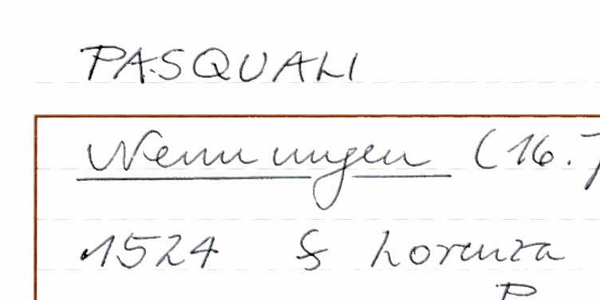 PASQUALI
Nennungen (16.
1524 & Lorenza